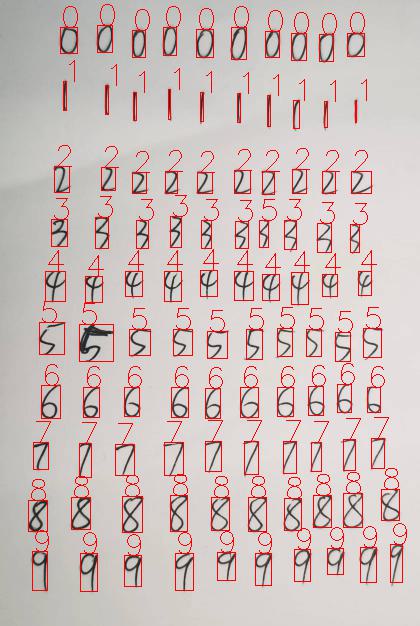 0 0 0 0 0 0 0 0 0 0
0 0 0 0 0 0 0 0 0 0
1 1 1 1 1 1 1 1 1 1
1 1 1 1 1 1 1 1 1 1
2 2 2 2 2 2 2 2 2 2
2 2 2 2 2 2 2 2 2 2
3 3 3 3 3 3 5 3 3 3
3 3 3 3 3 3 3 3 3 3
4 4 4 4 4 4 4 4 4 4
4 4 4 4 4 4 4 4 4 4
5 5 5 5 5 5 5 5 5 5
5 5 5 5 5 5 5 5 5 5
6 6 6 6 6 6 6 6 6 6
6 6 6 6 6 6 6 6 6 6
7 7 7 7 7 7 7 7 7 7
7 7 7 7 7 7 7 7 7 7
8 8 8 8 8 8 8 8 8 8
8 8 8 8 8 8 8 8 8 8
9 9 9 9 9 9 9 9 9 9
9 9 9 9 9 9 9 9 9 9